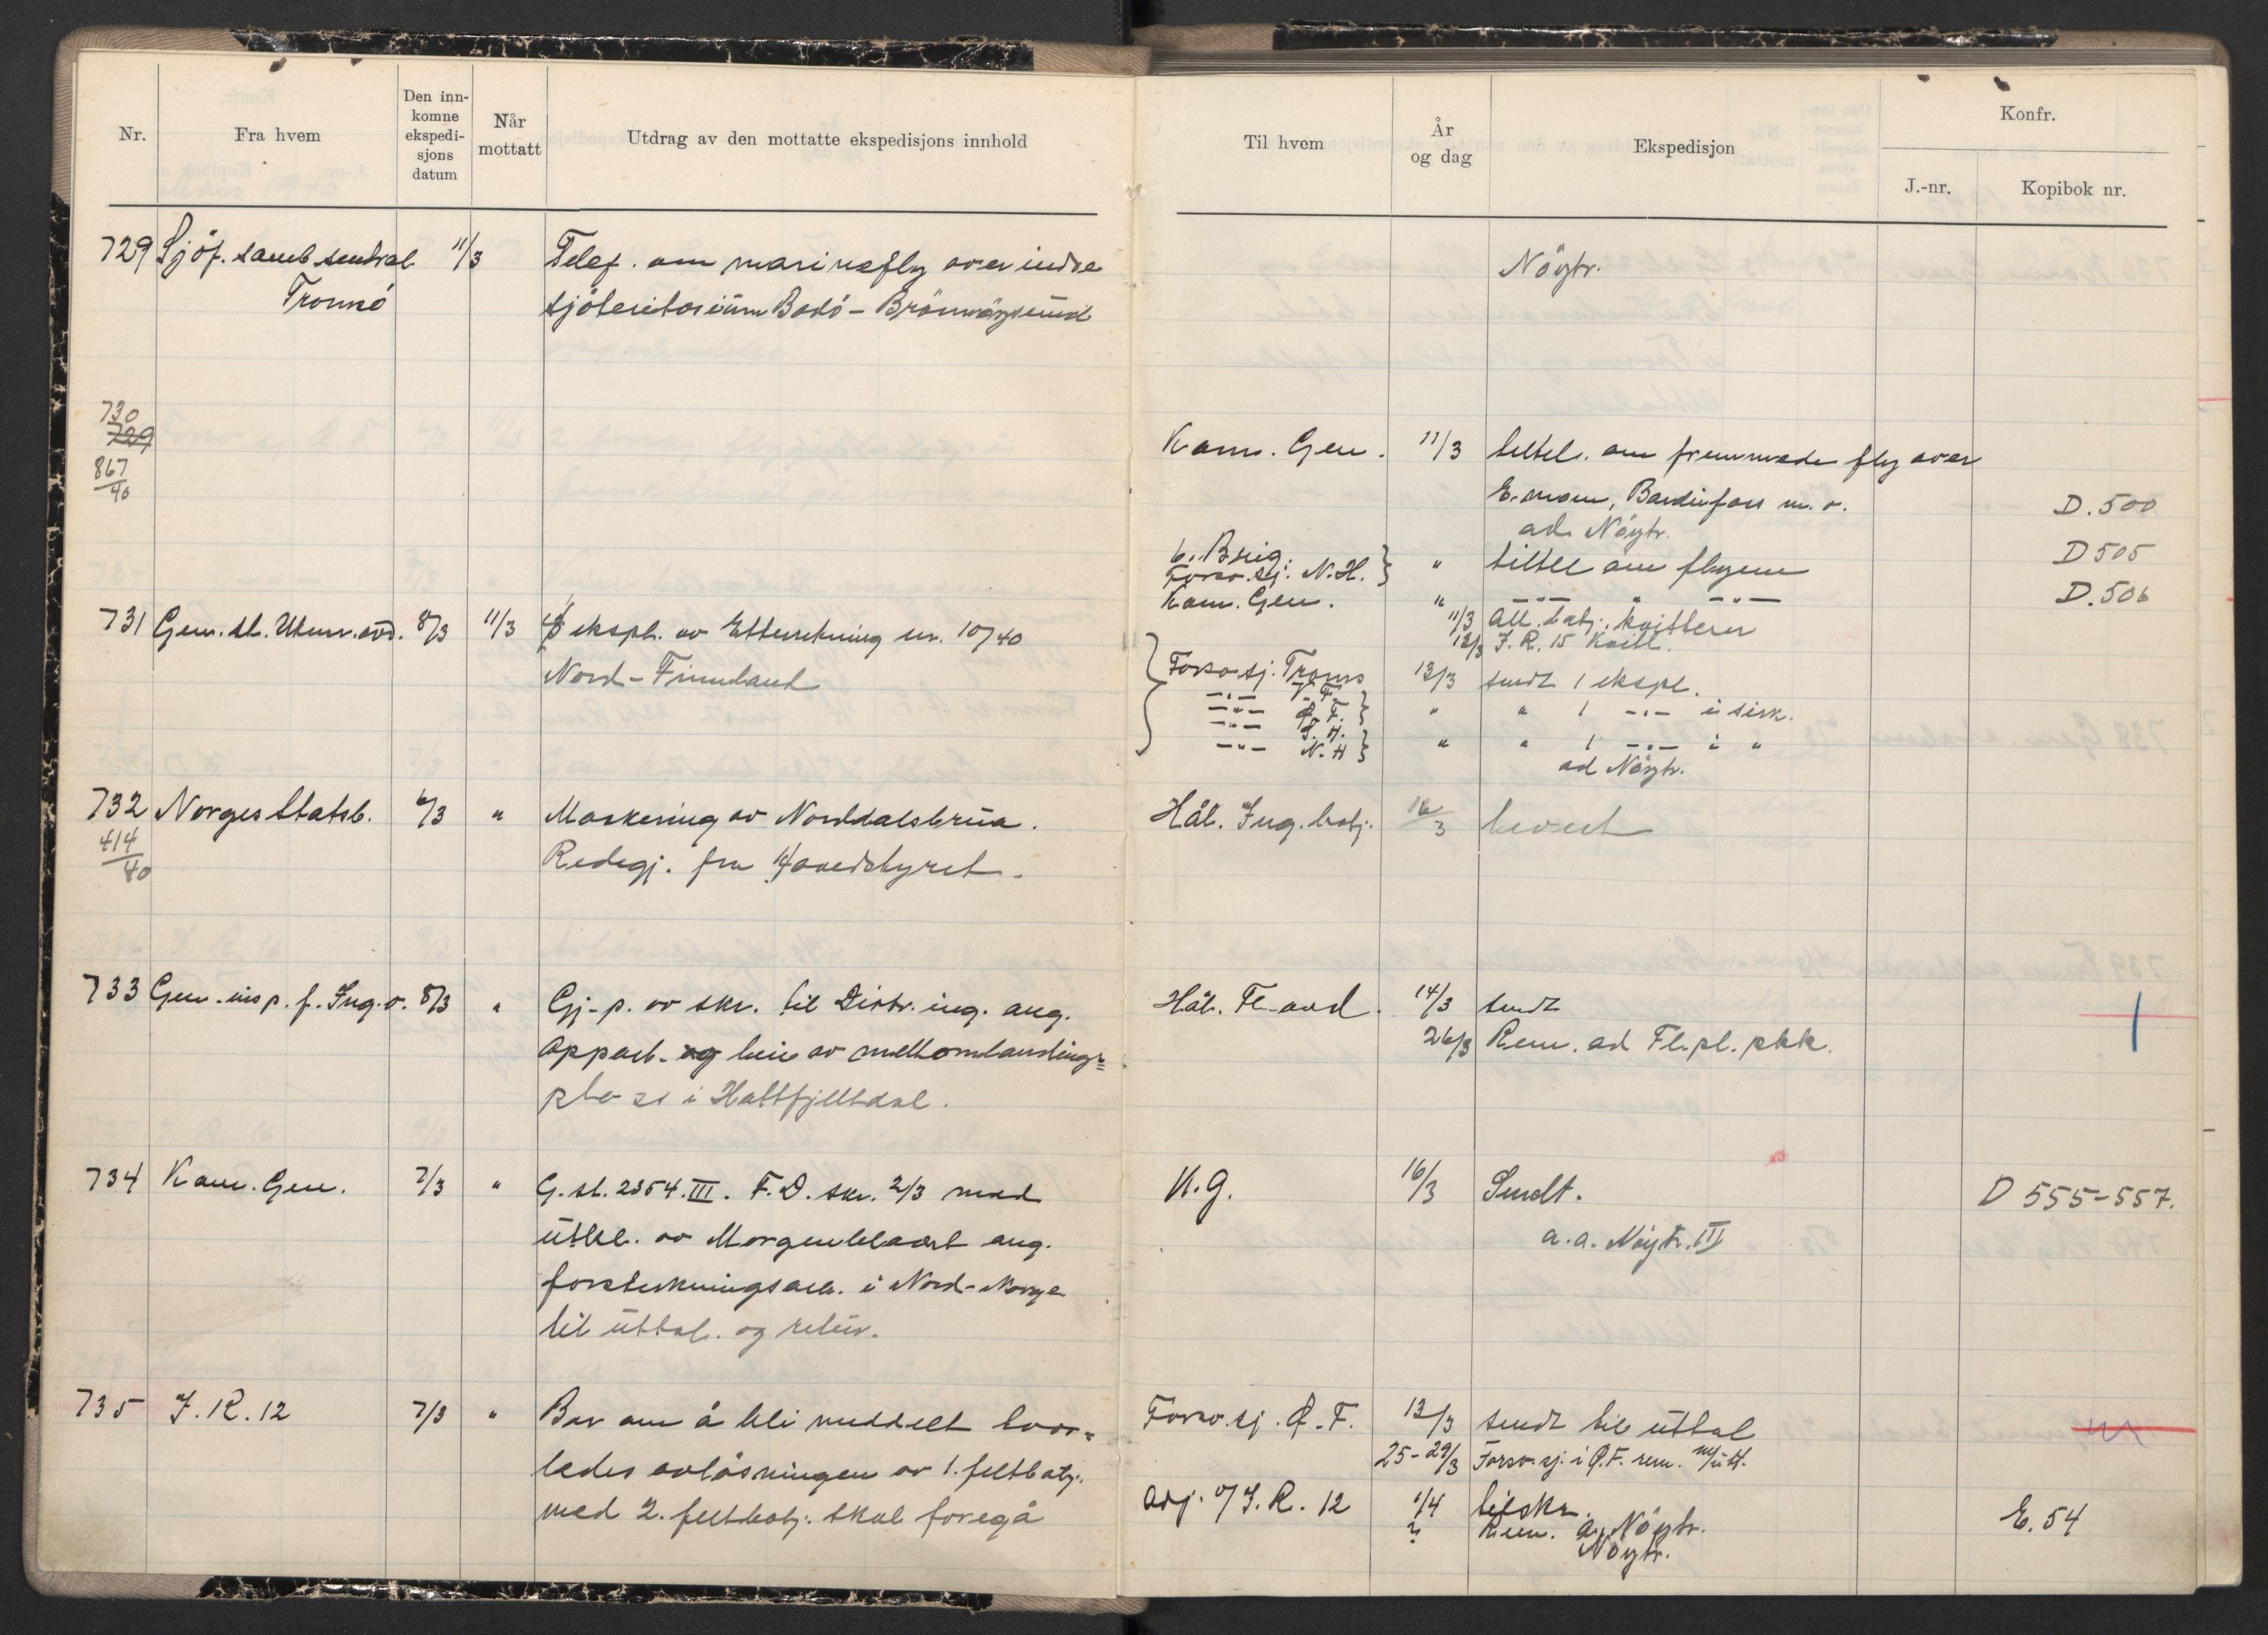 Nr.
Fra hvem
Den inn-
komne
ekspedi-
sjons
datum
Når
mottatt
Utdrag av den mottatte ekspedisjons innhold
729 Sjöf. samb sentral 11/3 Telef. om marinefly over indre
Tromsö sjöteritorium Bodö - Brönnöysund
730
729
867/40
731 Gen. st. Utenr. avd. 8/3 11/3 ekspl. av Etterretning nr. 10/40
Nord-Finnland
732 Norges Statsb. 6/3 " Maskering av Norddalsbrua.
414/40 Redegj. fra Hovedstyret.
733 Gen. insp. f. Ing. v. 8/3 " Gj-p. av skr. til Distr. ing. ang.
opparb. og leie av mellomlandings=
plass i Hattfjelldal.
734 Kom. Gen. 7/3 " G. st. 2354. III. F. D. skr. 2/3 med
utkl. av Morgenbladet ang.
forsterkningsarb. i Nord-Norge
til uttal. og retur.
735 I. R. 12 7/3 " Ber om å bli meddelt hvor=
ledes avlösningen av 1. feltbatj.
med 2. feltbatj. skal foregå
Til hvem
År
og dag
Ekspedisjon
Konfr.
J.-nr.
Kopibok nr.
Nöytr.
Kom. Gen. 11/3 teltel. om fremmede fly over
E.moen, Bardufoss m. v. D. 500
ad. Nöytr.
6. Brig.
Forsv.sj. N. H. } " tiltel om flyene D 505
Kom. Gen. " —"— " —"— D. 506
11/3 Alt. batj. kvitterer
12/3 I. R. 15 kvitt.
Forsv.sj. Troms 13/3 sendt 1 ekspl.
—"— V. F.
—"— Ø. F. } " " 1 —"— i sirk.
—"— S. H.
—"— N. H } " " 1 —"— i "
ad Nöytr.
Hål. Ing. batj. 16/3 levert
Hål. Fl-avd. 14/3 sendt
26/3 Rem. ad Fl.pl. pkk.
K. G. 16/3 Sendt. D 555-557.
a. a. Nöytr. III
Forsv.sj. Ø. F. 13/3 sendt til uttal
25-29/3 Forsv.sj. i Ø. F. rem. m/utt.
Adj. v/ I. R. 12 1/4 tilskr. E. 54
? Rem. a. Nöytr.
Nöytr.